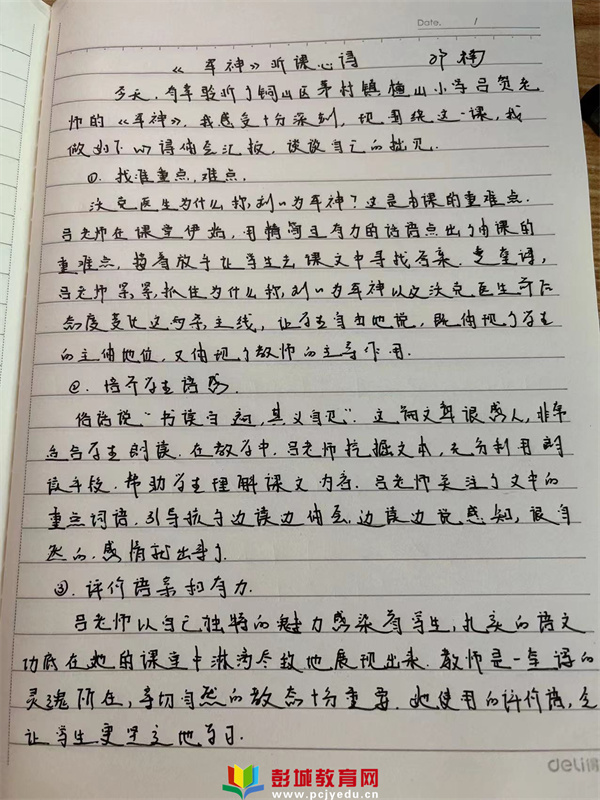 Date. /
《军神》听课心得 邓楠
今天,有幸聆听了铜山区茅村镇檀山小学吕贺老
师的《军神》,我感受十分深刻,现围绕这一课,我
做如下心得体会汇报,谈谈自己的拙见.
①. 找准重点,难点.
沃克医生为什么称刘ㄙ为军神?这是本课的重难点.
吕老师在课堂伊始,用精简且有力的话语点出了本课的
重难点,接着放手让学生去课文中寻找答案.这堂课,
吕老师紧紧抓住为什么称刘ㄙ为军神以及沃克医生前后
态度变化这两条主线,让学生自由地说,既体现了学生
的主体地位,又体现了教师的主导作用.
②. 培养学生语感.
俗话说"书读百遍,其义自见".这篇文章很感人,非常
适合学生朗读.在教学中,吕老师挖掘文本,充分利用朗
读手段,帮助学生理解课文内容.吕老师关注了文中的
重点词语,引导孩子边读边体会,边读边说感知,很自
然的,感情就出来了.
③. 评价语亲和有力.
吕老师以自己独特的魅力感染着学生,扎实的语文
功底在她的课堂中淋漓尽致地展现出来.教师是一堂课的
灵魂所在,亲切自然的教态十分重要.她使用的评价语,会
让学生更坚定地学习.
deli得
彭城教育网
www.pcjyedu.cn